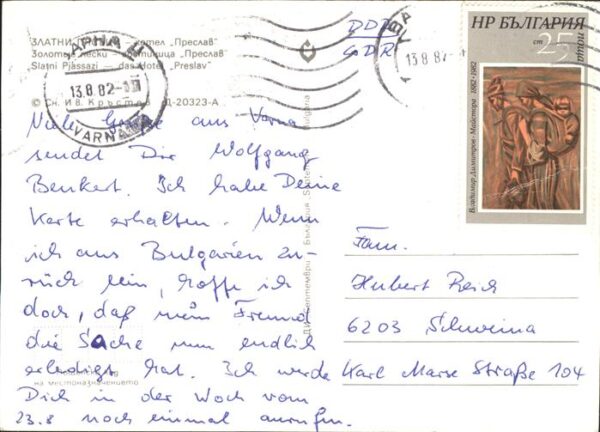 ЗЛАТНИ
тел „Преслав"
Золотые пески
тиница „Преслав"
Slatni Pjassazi — das Hotel „Preslav"
© Сн. Ив. Кръстев Д-20323-А
ВАРНА Ц
13.8.82
VARNA
13.8.82
DDR
GDR
НР БЪЛГАРИЯ
поща
25
ст
Владимир Димитров - Майстора · 1882 - 1982
Viele Grüße aus Varna
sendet Dir Wolfgang
Benkert. Ich habe Deine
Karte erhalten. Wenn
ich aus Bulgarien zu-
rück bin, hoffe ich
doch, daß mein Freund
die Sache nun endlich
erledigt hat. Ich werde
Dich in der Woch vom
23.8 noch einmal anrufen.
на местоназначението
Fam.
Hubert Reich
6203 Schweina
Karl Marx Straße 104